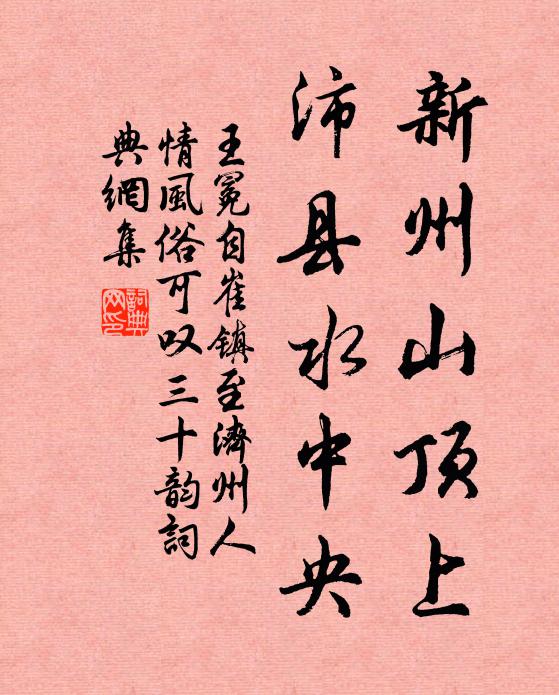 新州山顶上
沛县水中央
王冕自崔镇至濟州人
情風俗可叹三十韵詞
典網集
詞典
网印